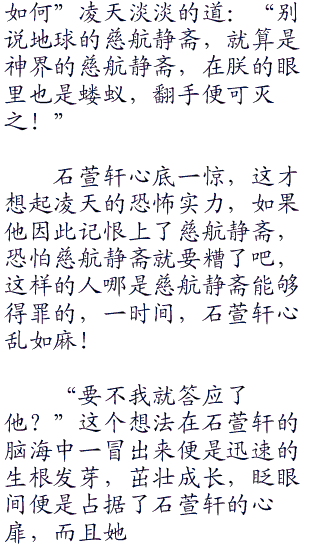 如何”凌天淡淡的道：“别
说地球的慈航静斋，就算是
神界的慈航静斋，在朕的眼
里也是蝼蚁，翻手便可灭
之！”
石萱轩心底一惊，这才
想起凌天的恐怖实力，如果
他因此记恨上了慈航静斋，
恐怕慈航静斋就要糟了吧，
这样的人哪是慈航静斋能够
得罪的，一时间，石萱轩心
乱如麻！
“要不我就答应了
他？”这个想法在石萱轩的
脑海中一冒出来便是迅速的
生根发芽，茁壮成长，眨眼
间便是占据了石萱轩的心
扉，而且她